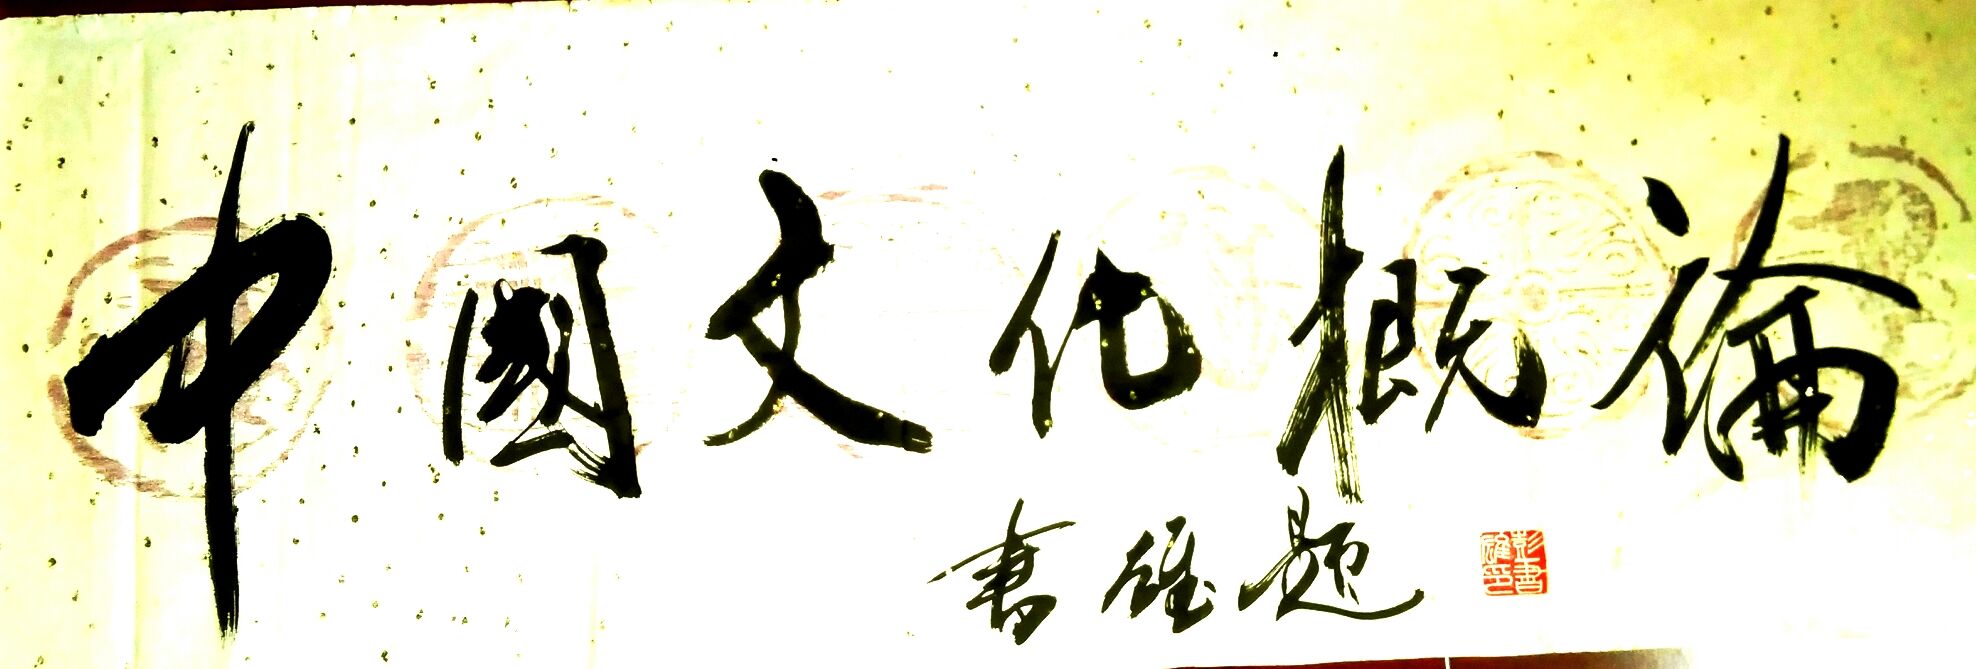 中國文化概論
書雄題
彭書
雄印